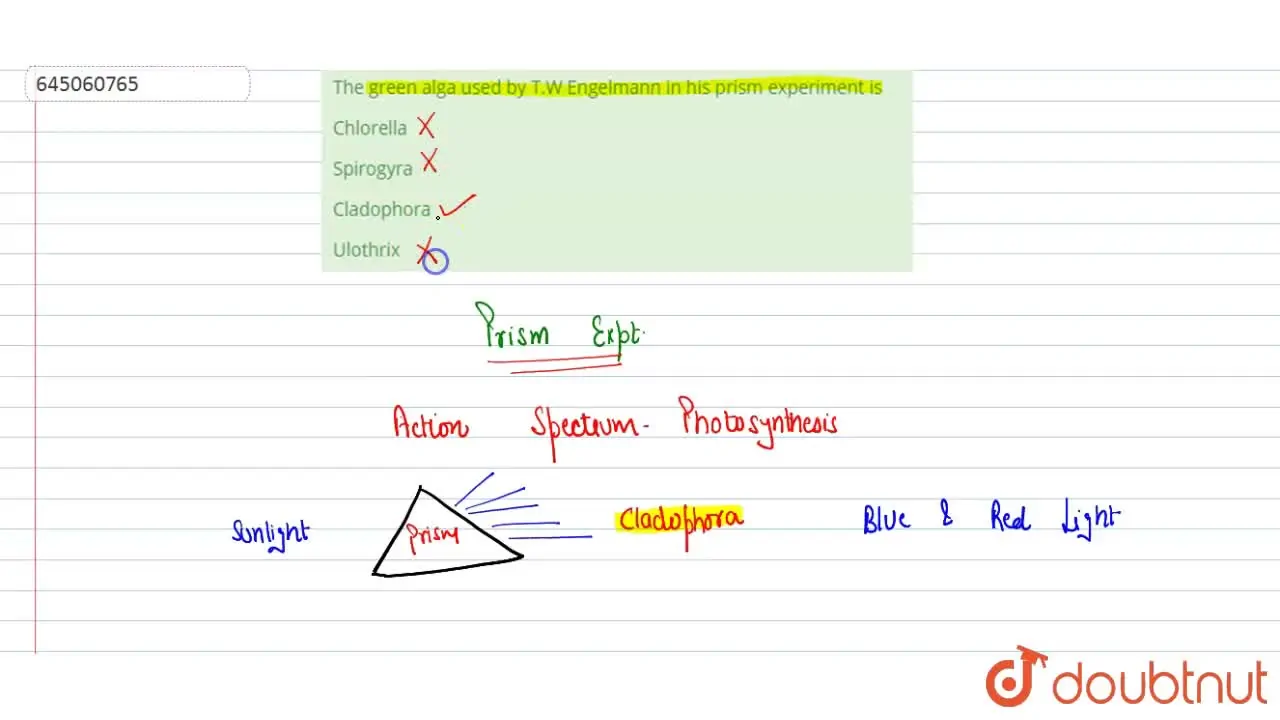 645060765
The green alga used by T.W Engelmann in his prism experiment is
Chlorella
Spirogyra
Cladophora
Ulothrix
Prism Expt.
Action Spectrum - Photosynthesis
Sunlight Prism Cladophora Blue & Red Light
doubtnut